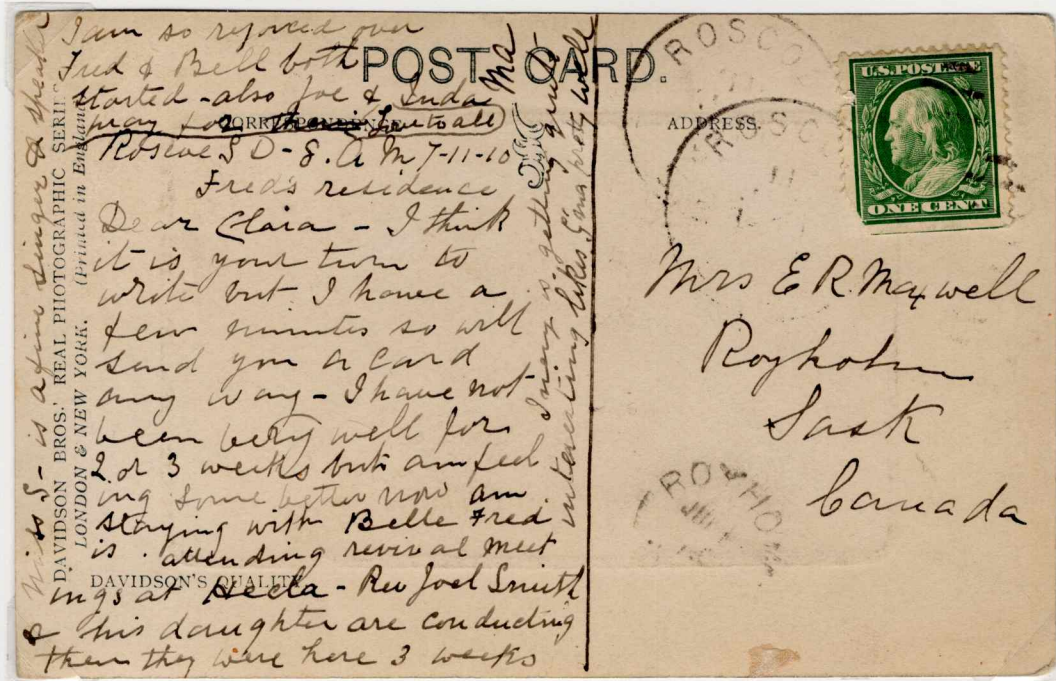 I am so rejoiced over
Fred & Bell both
started - also Joe &
pray for
POST CARD.
CORRESPONDENCE.
ADDRESS.
Roscoe S D - 8. A M 7-11-10
Fred's residence
Dear Clara - I think
it is your turn to
write but I have a
few minutes so will
send you a card
any way - I have not
been very well for
2 or 3 weeks but am feel
ing some better now am
staying with Belle Fred
is attending revival meet
ings at Hecla - Rev Joel Smith
& his daughter are conducting
them they were here 3 weeks
& Miss S - is a fine singer & speaker
is getting quite
interesting likes G'ma pretty well
Ma
DAVIDSON BROS.' REAL PHOTOGRAPHIC SERIES
LONDON & NEW YORK. (Printed in England)
DAVIDSON'S QUALITY
ROSCO
ROSCO
11
U.S. POSTAGE
ONE CENT
Mrs E R Maxwell
Royholm
Sask
Canada
ROYHO